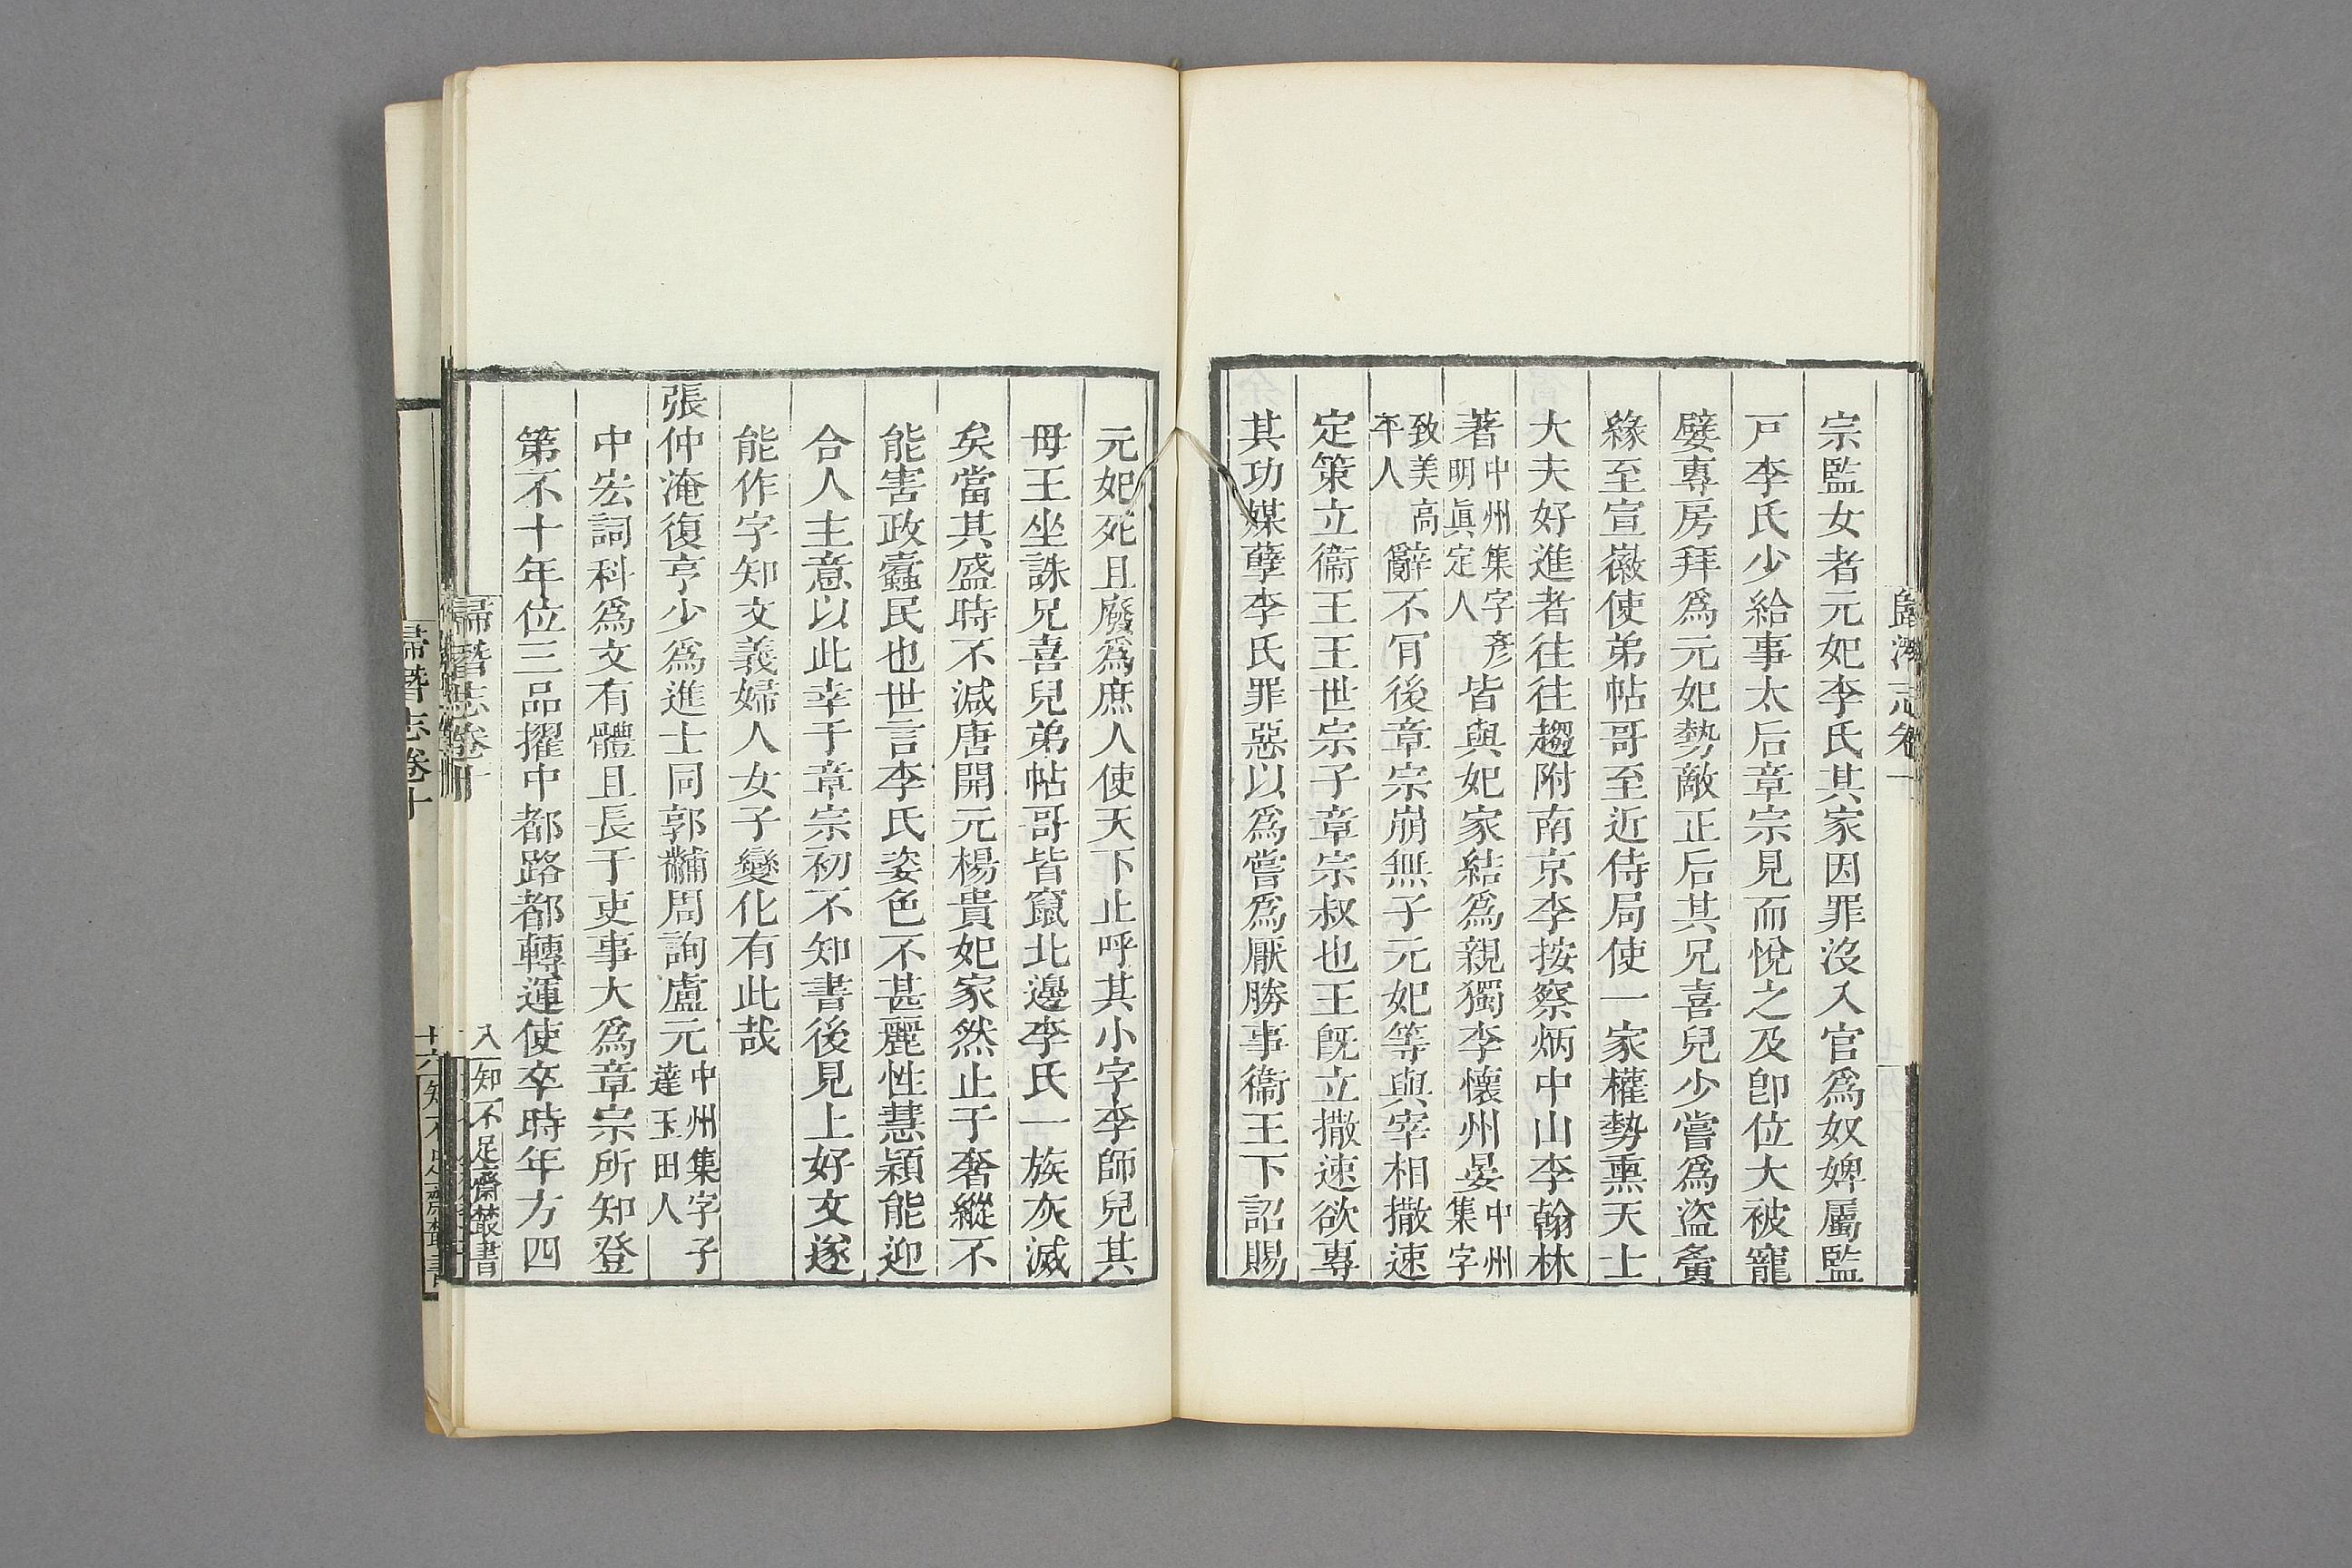 宗監女者元妃李氏其家因罪沒入官爲奴婢屬監
戸李氏少給事太后章宗見而悅之及卽位大被寵
嬖專房拜爲元妃勢敵正后其兄喜兒少嘗爲盜夤
緣至宣徽使弟帖哥至近侍局使一家權勢熏天士
大夫好進者往往趨附南京李按察炳中山李翰林
著中州集字彥明眞定人皆與妃家結爲親獨李懷州晏中州集字
致美高平人辭不肎後章宗崩無子元妃等與宰相撒速
定策立衞王王世宗子章宗叔也王既立撒速欲專
其功媒孽李氏罪惡以爲嘗爲厭勝事衞王下詔賜
元妃死且廢爲庶人使天下止呼其小字李師兒其
母王坐誅兄喜兒弟帖哥皆竄北邊李氏一族灰滅
矣當其盛時不減唐開元楊貴妃家然止于奢縱不
能害政蠹民也世言李氏姿色不甚麗性慧穎能迎
合人主意以此幸于章宗初不知書後見上好文遂
能作字知文義婦人女子變化有此哉
張仲淹復亨少爲進士同郭黼周詢盧元中州集字子達玉田人
中宏詞科爲文有體且長于吏事大爲章宗所知登
第不十年位三品擢中都路都轉運使卒時年方四
歸潛志卷十
八
知不足齋叢書
歸潛志卷十
十六